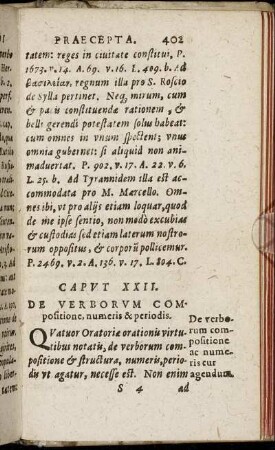 PRAECEPTA. 402
tatem: reges in ciuitate constitui, P.
1673. v. 14. A. 69. v. 16. L. 409. b. Ad
βασιλείαν, regnum illa pro S. Roscio
de Sylla pertinet. Neq; mirum, cum
& pacis constituendæ rationem, &
belli gerendi potestatem solus habeat:
cum omnes in vnum spectent; vnus
omnia gubernet: si aliquid non ani-
maduertat. P. 902. v. 17. A. 22. v. 6.
L. 25. b. Ad Tyrannidem illa est ac-
commodata pro M. Marcello. Om-
nes ibi, vt pro alijs etiam loquar, quod
de me ipse sentio, non modò excubias
& custodias sed etiam laterum nostro-
rum oppositus, & corporũ pollicemur.
P. 2469. v. 2. A. 136. v. 17. L. 804. C.
CAPVT XXII.
DE VERBORVM COM-
positione, numeris & periodis.
QVatuor Oratoriæ orationis virtu-
tibus notatis, de verborum com-
positione & structura, numeris, perio-
dis vt agatur, necesse est. Non enim
De verbo-
rum com-
positione
ac nume-
ris cur
agendum.
S 4 ad